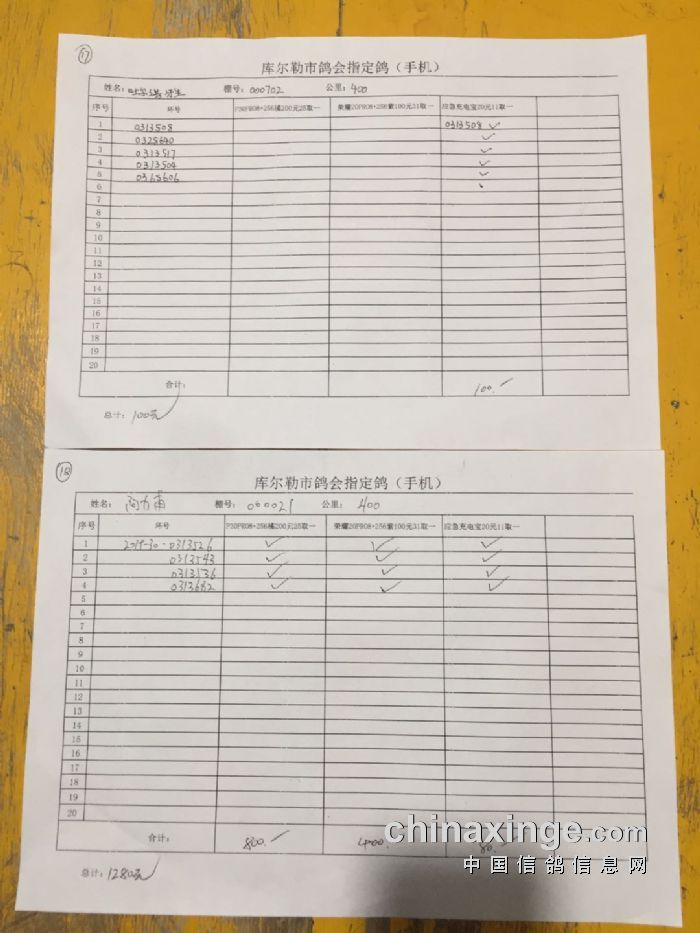 17
库尔勒市鸽会指定鸽（手机）
姓名： 棚号：000702 公里：400
序号 环号 P30PRO8+256橘200元25取一 荣耀20PRO8+256紫100元31取一 应急充电宝20元11取一
1 0313508 0313508 ✓
2 0325640 ✓
3 0313517 ✓
4 0313504 ✓
5 0365606 ✓
6
7
8
9
10
11
12
13
14
15
16
17
18
19
20
合计： 100.
总计：100元
18
库尔勒市鸽会指定鸽（手机）
姓名： 棚号：000021 公里：400
序号 环号 P30PRO8+256橘200元25取一 荣耀20PRO8+256紫100元31取一 应急充电宝20元11取一
1 2019-30-0313526 ✓ ✓ ✓
2 0313543 ✓ ✓ ✓
3 0313536 ✓ ✓ ✓
4 0313682 ✓ ✓ ✓
5
6
7
8
9
10
11
12
13
14
15
16
17
18
19
20
合计： 800. 400. 80.
总计：1280元
chinaxinge.com
中国信鸽信息网